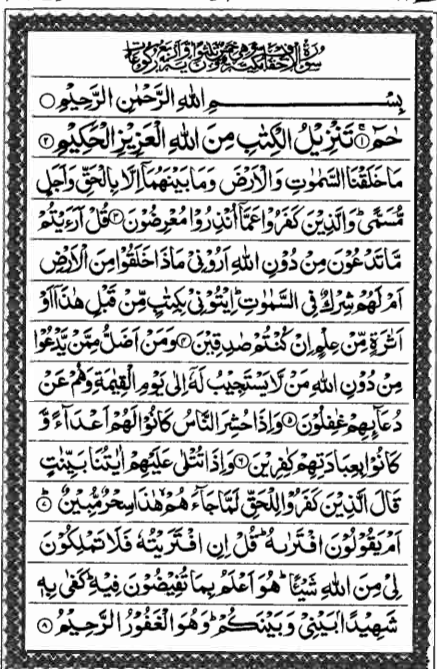 سُوْرَةُ الْاَحْقَافِ مَكِّيَّةٌ
بِسْــــــمِ اللّٰهِ الرَّحْمٰنِ الرَّحِيْمِ
حٰمٓ ۚ۝۱ تَنْزِيْلُ الْكِتٰبِ مِنَ اللّٰهِ الْعَزِيْزِ الْحَكِيْمِ ۝۲
مَا خَلَقْنَا السَّمٰوٰتِ وَالْاَرْضَ وَمَا بَيْنَهُمَاۤ اِلَّا بِالْحَقِّ وَاَجَلٍ
مُّسَمًّى ؕ وَالَّذِيْنَ كَفَرُوْا عَمَّاۤ اُنْذِرُوْا مُعْرِضُوْنَ ۝۳ قُلْ اَرَءَيْتُمْ
مَّا تَدْعُوْنَ مِنْ دُوْنِ اللّٰهِ اَرُوْنِيْ مَاذَا خَلَقُوْا مِنَ الْاَرْضِ
اَمْ لَهُمْ شِرْكٌ فِي السَّمٰوٰتِ ؕ اِيْتُوْنِيْ بِكِتٰبٍ مِّنْ قَبْلِ هٰذَاۤ اَوْ
اَثٰرَةٍ مِّنْ عِلْمٍ اِنْ كُنْتُمْ صٰدِقِيْنَ ۝۴ وَمَنْ اَضَلُّ مِمَّنْ يَّدْعُوْا
مِنْ دُوْنِ اللّٰهِ مَنْ لَّا يَسْتَجِيْبُ لَهٗۤ اِلٰى يَوْمِ الْقِيٰمَةِ وَهُمْ عَنْ
دُعَآئِهِمْ غٰفِلُوْنَ ۝۵ وَاِذَا حُشِرَ النَّاسُ كَانُوْا لَهُمْ اَعْدَآءً وَّ
كَانُوْا بِعِبَادَتِهِمْ كٰفِرِيْنَ ۝۶ وَاِذَا تُتْلٰى عَلَيْهِمْ اٰيٰتُنَا بَيِّنٰتٍ
قَالَ الَّذِيْنَ كَفَرُوْا لِلْحَقِّ لَمَّا جَآءَهُمْ ۙ هٰذَا سِحْرٌ مُّبِيْنٌ ؕ۝۷
اَمْ يَقُوْلُوْنَ افْتَرٰىهُ ؕ قُلْ اِنِ افْتَرَيْتُهٗ فَلَا تَمْلِكُوْنَ
لِيْ مِنَ اللّٰهِ شَيْئًا ؕ هُوَ اَعْلَمُ بِمَا تُفِيْضُوْنَ فِيْهِ ؕ كَفٰى بِهٖ
شَهِيْدًۢا بَيْنِيْ وَبَيْنَكُمْ ؕ وَهُوَ الْغَفُوْرُ الرَّحِيْمُ ۝۸